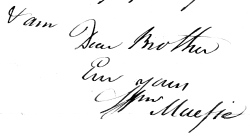 & am
Dear Brother
Ever yours
Wm Macfie